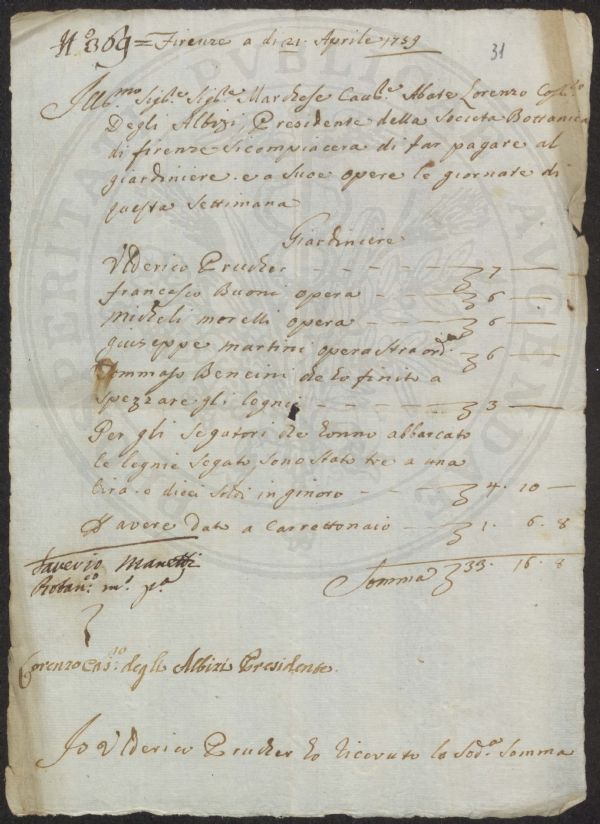 N° 369 = Firenze a di 21. Aprile 1759
31
Ill.mo Sig.re Sig.re Marchese Caul.e Abate Lorenzo
Degli Albizi, Presidente della Societa Bottanica
di firenze Si compiacera di far pagare al
giardiniere. e a Suoe opere le giornate di
questa Settimana
Giardiniere
Ulderico Prucher - - - - 7 —
francesco Buoni opera - - 6 —
Micheli morelli opera - - 6 —
giuseppe martini opera straord.ia 6 —
Tommaso Bencini che ho finito a
Spezzare gli legni - - - - 3 —
Per gli Segatori che abbarcato
le legnie Segato Sono Stato tre a una
lira. e dieci Soldi - - 4. 10 —
Havere dato a Carrettonaio - - 1. 6. 8
Saverio Manetti
Somma 33. 16. 8
Lorenzo degli Albizi Presidente.
Io Ulderico Prucher ho ricevuto la Sod.a Somma
PROSPERITATI PVBLICAE AVGENDAE